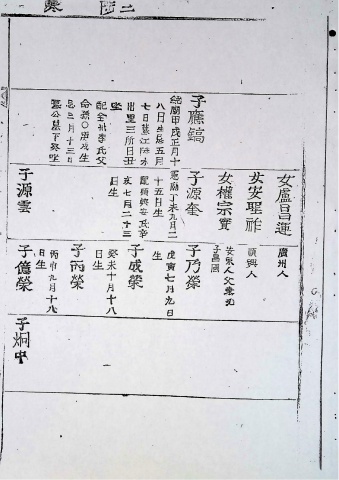 子應鎬
純廟甲戌正月十
八日生忌五月
七日墓江陵水
出里三所日丑
坐
配全州李氏父
命禧〇
忌三月十三日
墓公墓下癸坐
女盧昌運
廣州人
女安聖祚
順興人
女權宗實
安東人父
子昌國
子源奎
憲廟丁未九月二
十五日生
配順興安氏辛
亥七月二十三
日生
子源雲
子乃榮
戊寅七月九日
生
子成榮
癸未十月十八
日生
子丙榮
丙申九月十八
日生
子億榮
子炯中